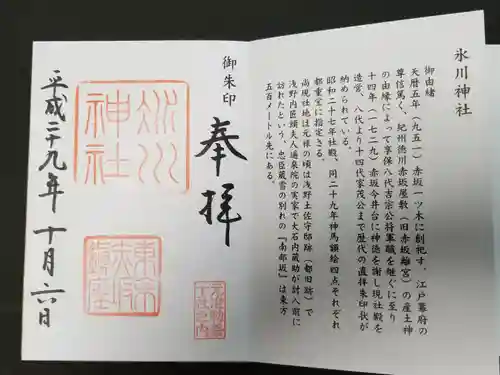 氷川神社
御由緒
天暦五年（九五一）赤坂一ツ木に創祀す、江戸幕府の
尊信篤く、紀州徳川赤坂屋敷（旧赤坂離宮）の産土神
の由縁によって享保八代吉宗公将軍職を継ぐに至り
十四年（一七二九）赤坂今井台に神徳を謝し現社殿を
造営、八代より十四代家茂公まで歴代の直拝朱印状が
納められている。
昭和二十七年社殿、同二十九年神馬額絵四点それぞれ
都重宝に指定さる。
尚現社地は元禄の頃は浅野土佐守邸跡（都旧跡）で
浅野内匠頭夫人遥泉院の実家で大石内蔵助が討入前に
訪れたという、忠臣蔵雪の別れの『南部坂』は東方
五百メートル先にある。
御朱印
奉拝
氷川
神社
東京
赤坂
鎮座
平成二十九年十月六日